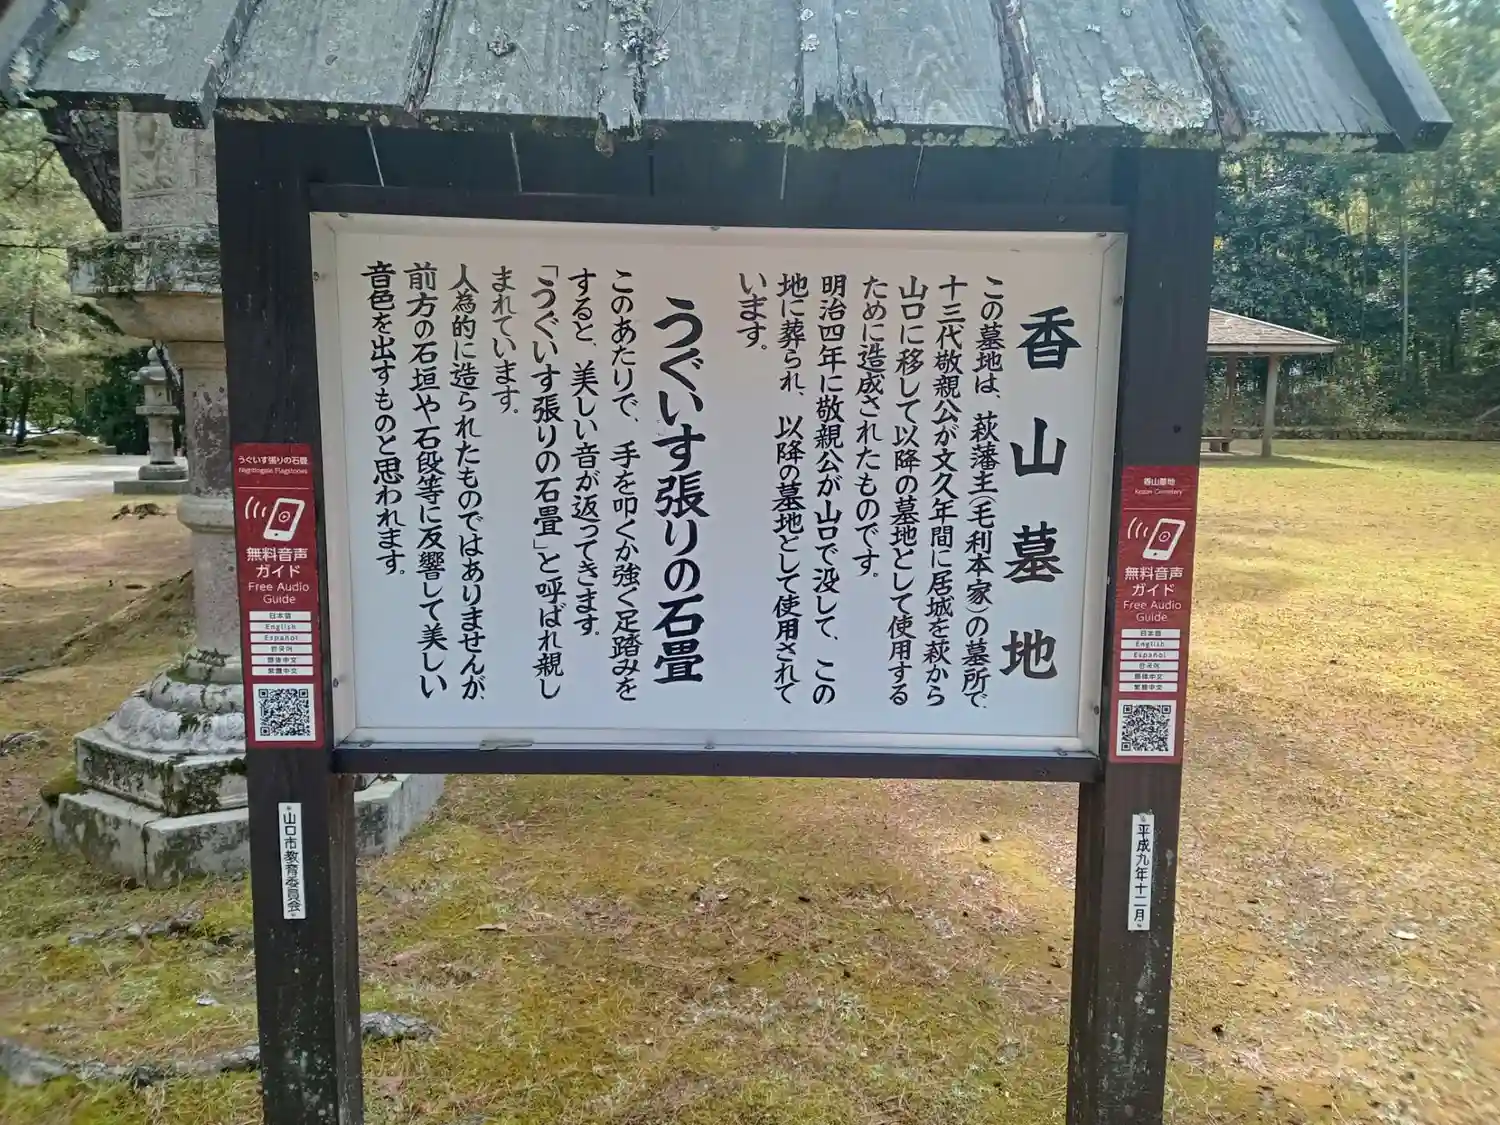 香山墓地
この墓地は、萩藩主(毛利本家)の墓所で、
十三代敬親公が文久年間に居城を萩から
山口に移して以降の墓地として使用する
ために造成されたものです。
明治四年に敬親公が山口で没して、この
地に葬られ、以降の墓地として使用されて
います。
うぐいす張りの石畳
このあたりで、手を叩くか強く足踏みを
すると、美しい音が返ってきます。
「うぐいす張りの石畳」と呼ばれ親し
まれています。
人為的に造られたものではありませんが、
前方の石垣や石段等に反響して美しい
音色を出すものと思われます。
香山墓地
Kozan Cemetery
無料音声
ガイド
Free Audio
Guide
日本語
English
Español
한국어
簡体中文
繁體中文
平成九年十二月
うぐいす張りの石畳
Nightingale Flagstones
無料音声
ガイド
Free Audio
Guide
日本語
English
Español
한국어
簡体中文
繁體中文
山口市教育委員会